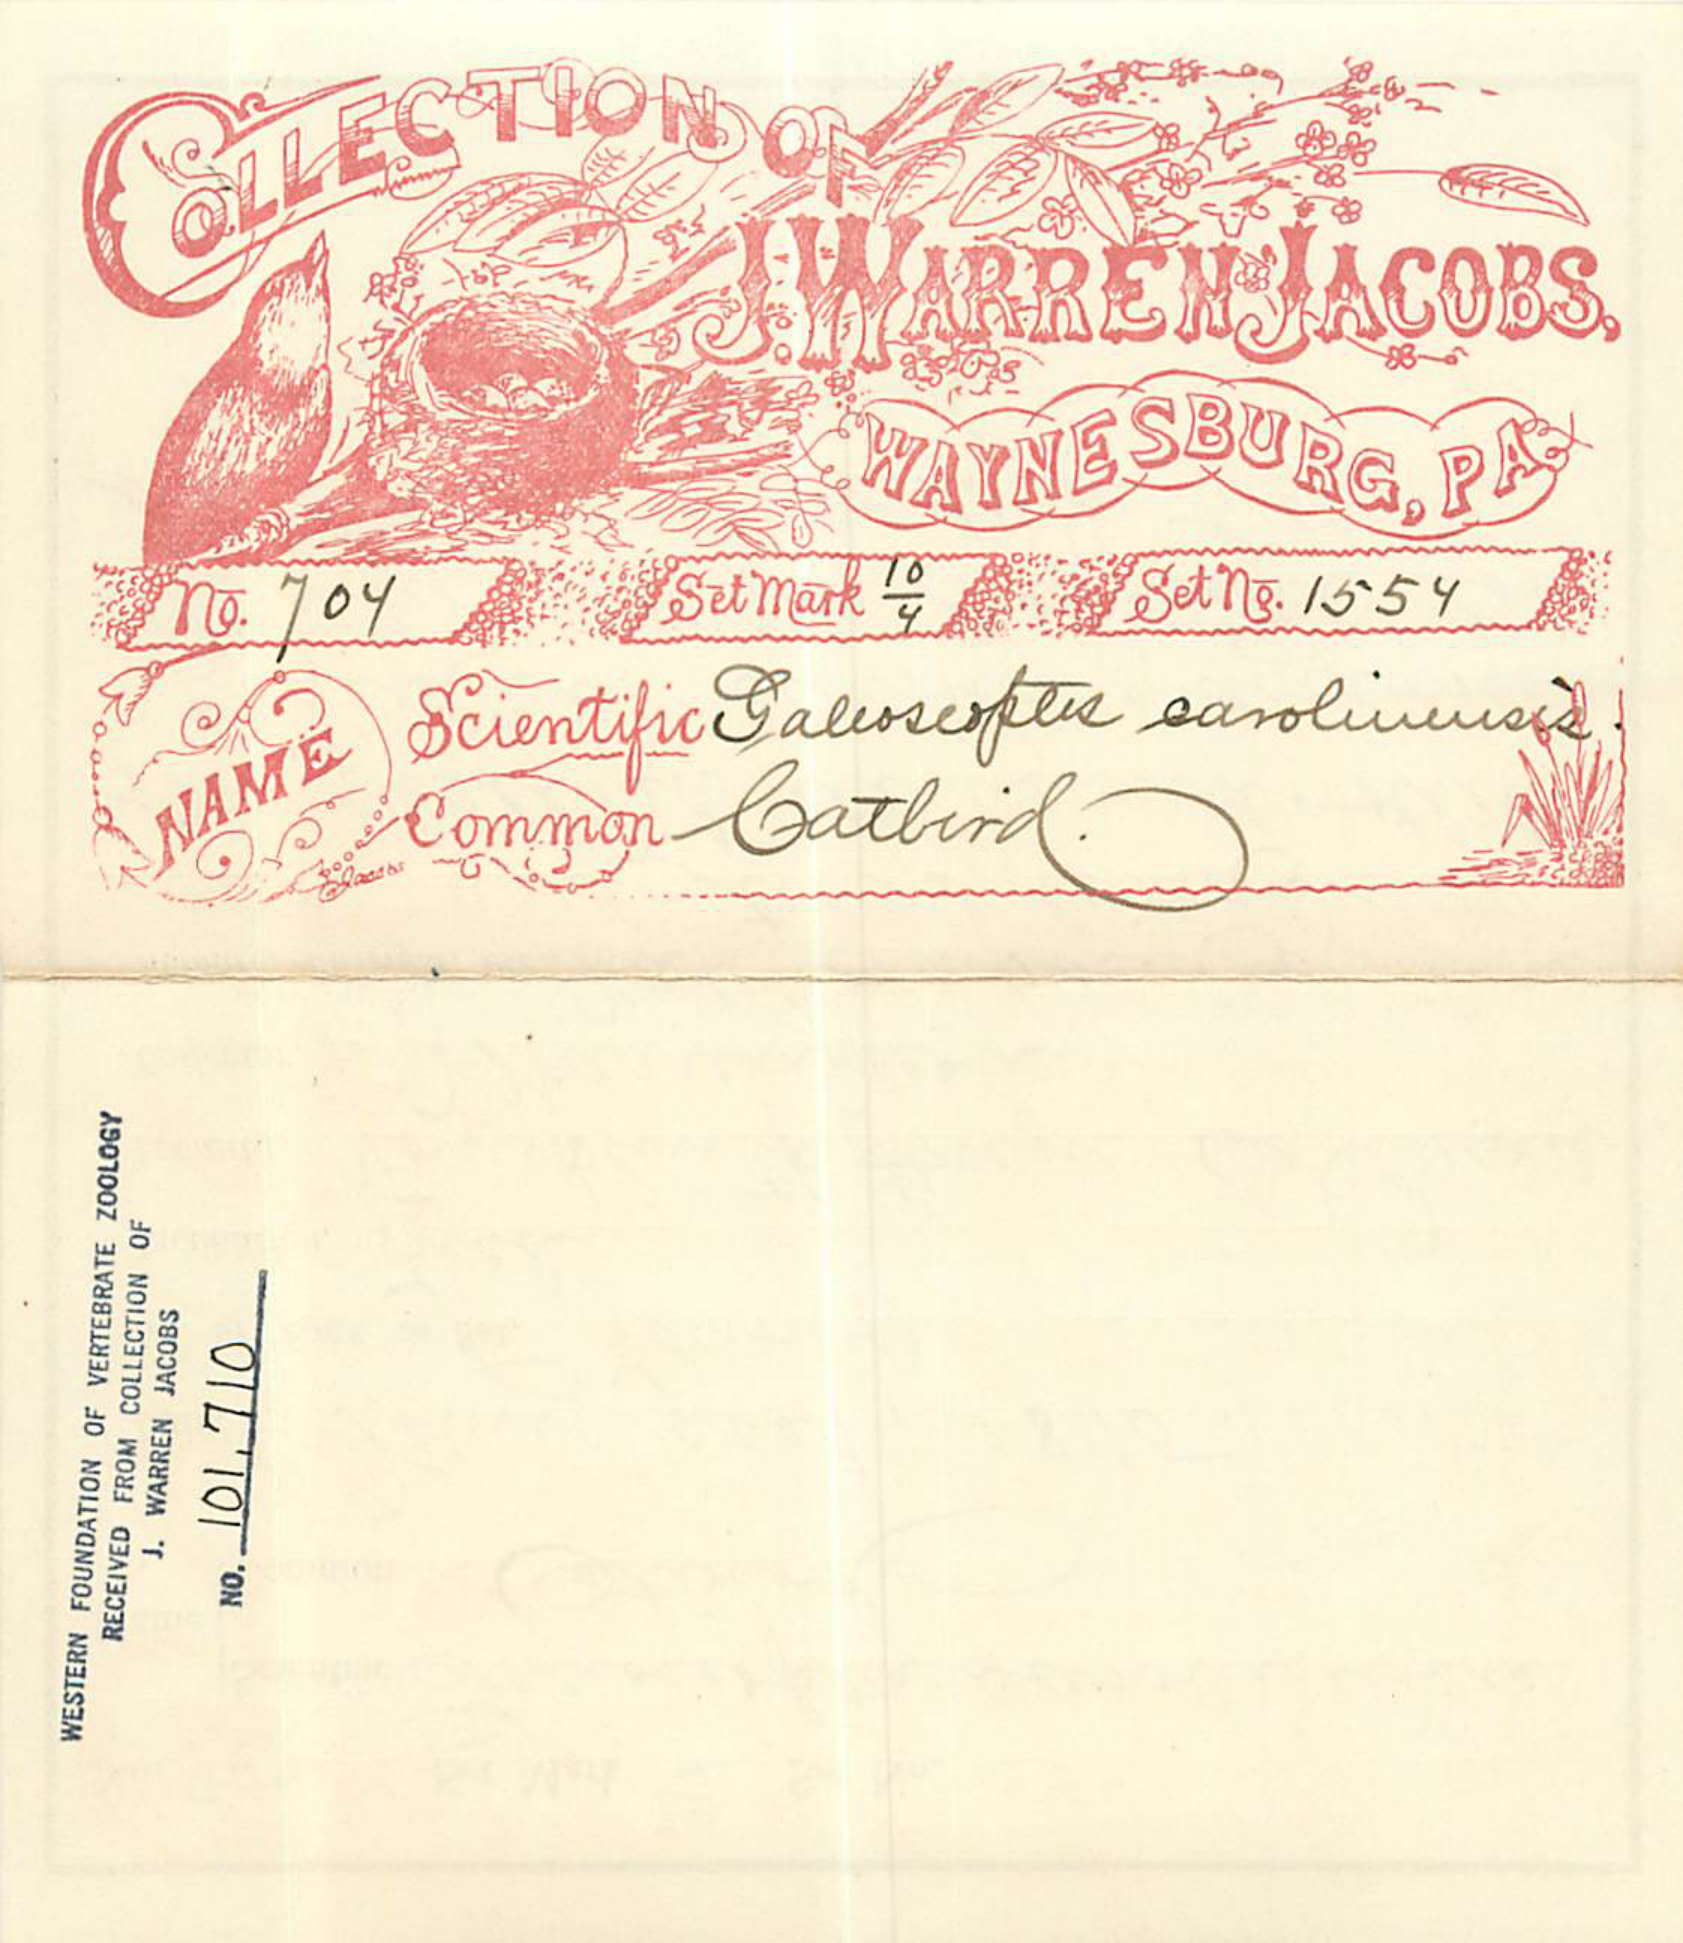 COLLECTION OF
J. WARREN JACOBS,
WAYNESBURG, PA.
No. 704 Set Mark 10/4 Set No. 1554
NAME
Scientific Galeoscoptes carolinensis.
Common Catbird.
Jacobs
WESTERN FOUNDATION OF VERTEBRATE ZOOLOGY
RECEIVED FROM COLLECTION OF
J. WARREN JACOBS
NO. 101,710